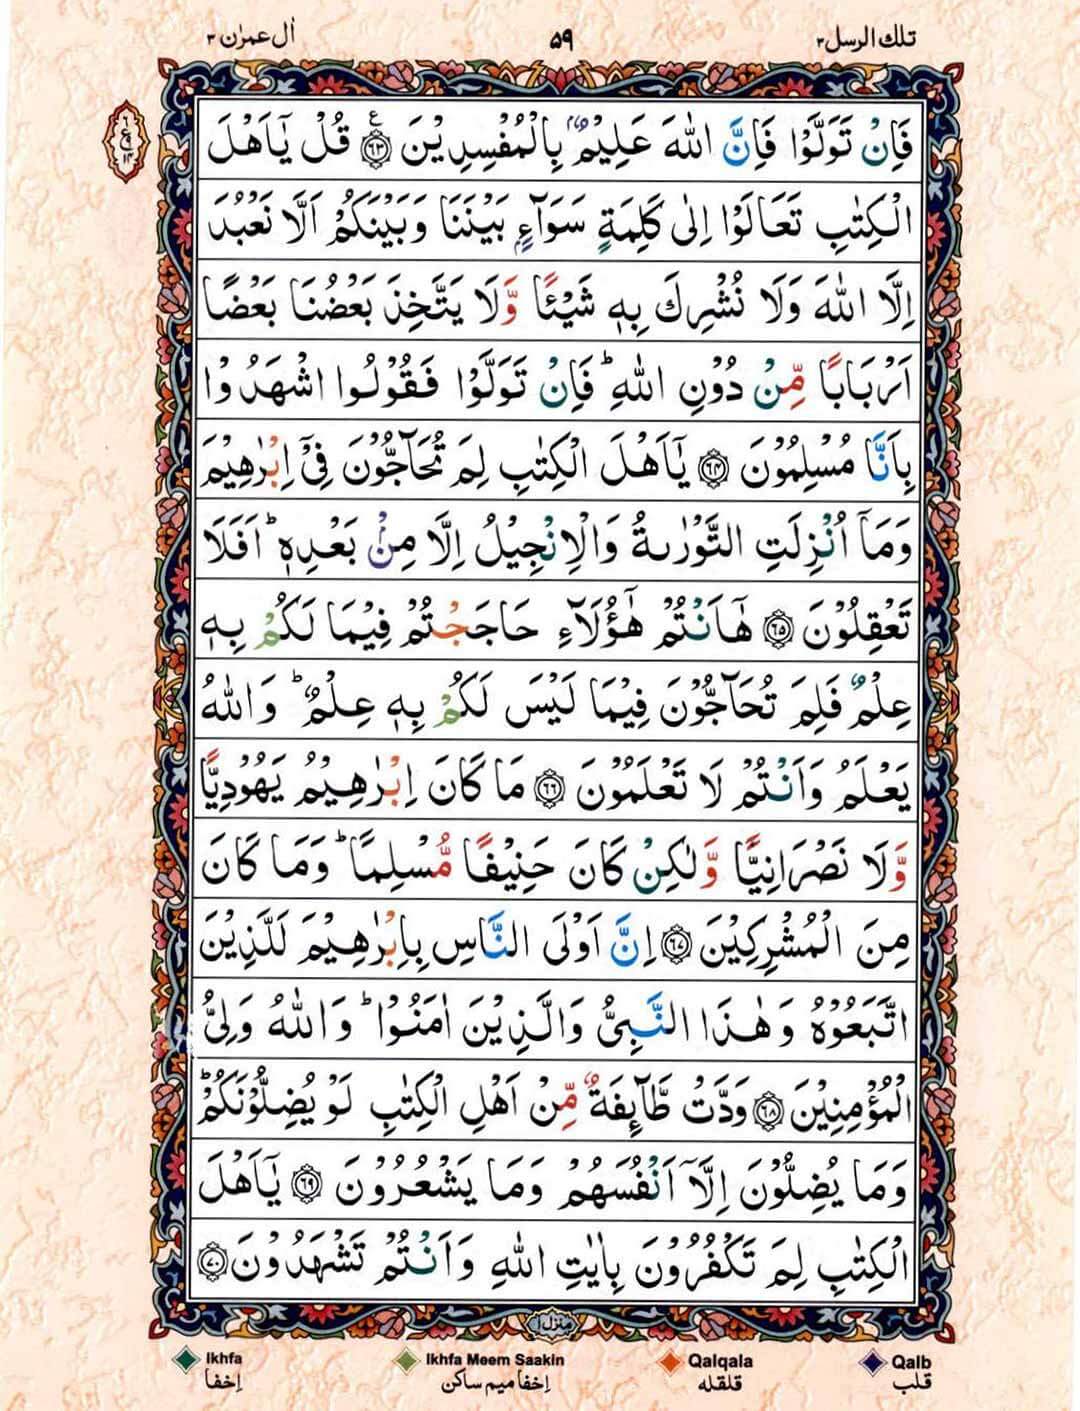 تلك الرسل ٣ ۵۹ اٰل عمرٰن ٣
ع ٦ ٩ ١٤
فَاِنْ تَوَلَّوْا فَاِنَّ اللّٰهَ عَلِيْمٌۢ بِالْمُفْسِدِيْنَ ﴿٦٣﴾ ع قُلْ يٰۤاَهْلَ
الْكِتٰبِ تَعَالَوْا اِلٰى كَلِمَةٍ سَوَآءٍۭ بَيْنَنَا وَبَيْنَكُمْ اَلَّا نَعْبُدَ
اِلَّا اللّٰهَ وَلَا نُشْرِكَ بِهٖ شَيْـًٔا وَّلَا يَتَّخِذَ بَعْضُنَا بَعْضًا
اَرْبَابًا مِّنْ دُوْنِ اللّٰهِ ؕ فَاِنْ تَوَلَّوْا فَقُوْلُوا اشْهَدُوْا
بِاَنَّا مُسْلِمُوْنَ ﴿٦٤﴾ يٰۤاَهْلَ الْكِتٰبِ لِمَ تُحَآجُّوْنَ فِيْۤ اِبْرٰهِيْمَ
وَمَاۤ اُنْزِلَتِ التَّوْرٰىةُ وَالْاِنْجِيْلُ اِلَّا مِنْۢ بَعْدِهٖ ؕ اَفَلَا
تَعْقِلُوْنَ ﴿٦٥﴾ هٰۤاَنْتُمْ هٰۤؤُلَآءِ حَاجَجْتُمْ فِيْمَا لَكُمْ بِهٖ
عِلْمٌ فَلِمَ تُحَآجُّوْنَ فِيْمَا لَيْسَ لَكُمْ بِهٖ عِلْمٌ ؕ وَاللّٰهُ
يَعْلَمُ وَاَنْتُمْ لَا تَعْلَمُوْنَ ﴿٦٦﴾ مَا كَانَ اِبْرٰهِيْمُ يَهُوْدِيًّا
وَّلَا نَصْرَانِيًّا وَّلٰكِنْ كَانَ حَنِيْفًا مُّسْلِمًا ؕ وَمَا كَانَ
مِنَ الْمُشْرِكِيْنَ ﴿٦٧﴾ اِنَّ اَوْلَى النَّاسِ بِاِبْرٰهِيْمَ لَلَّذِيْنَ
اتَّبَعُوْهُ وَهٰذَا النَّبِيُّ وَالَّذِيْنَ اٰمَنُوْا ؕ وَاللّٰهُ وَلِيُّ
الْمُؤْمِنِيْنَ ﴿٦٨﴾ وَدَّتْ طَّآئِفَةٌ مِّنْ اَهْلِ الْكِتٰبِ لَوْ يُضِلُّوْنَكُمْ ؕ
وَمَا يُضِلُّوْنَ اِلَّاۤ اَنْفُسَهُمْ وَمَا يَشْعُرُوْنَ ﴿٦٩﴾ يٰۤاَهْلَ
الْكِتٰبِ لِمَ تَكْفُرُوْنَ بِاٰيٰتِ اللّٰهِ وَاَنْتُمْ تَشْهَدُوْنَ ﴿٧٠﴾
منزل ١
Ikhfa Ikhfa Meem Saakin Qalqala Qalb
إخفا إخفا ميم ساكن قلقله قلب